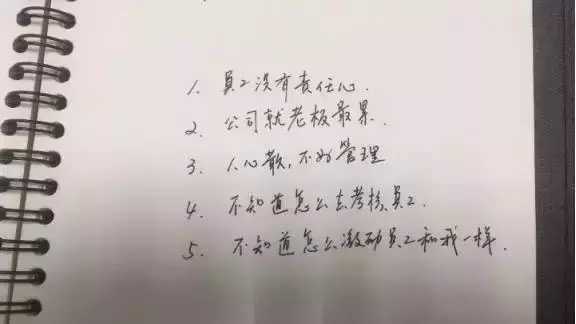 1. 员工没有责任心.
2. 公司就老板最累.
3. 人心散,不好管理
4. 不知道怎么去考核员工.
5. 不知道怎么激励员工和我一样.